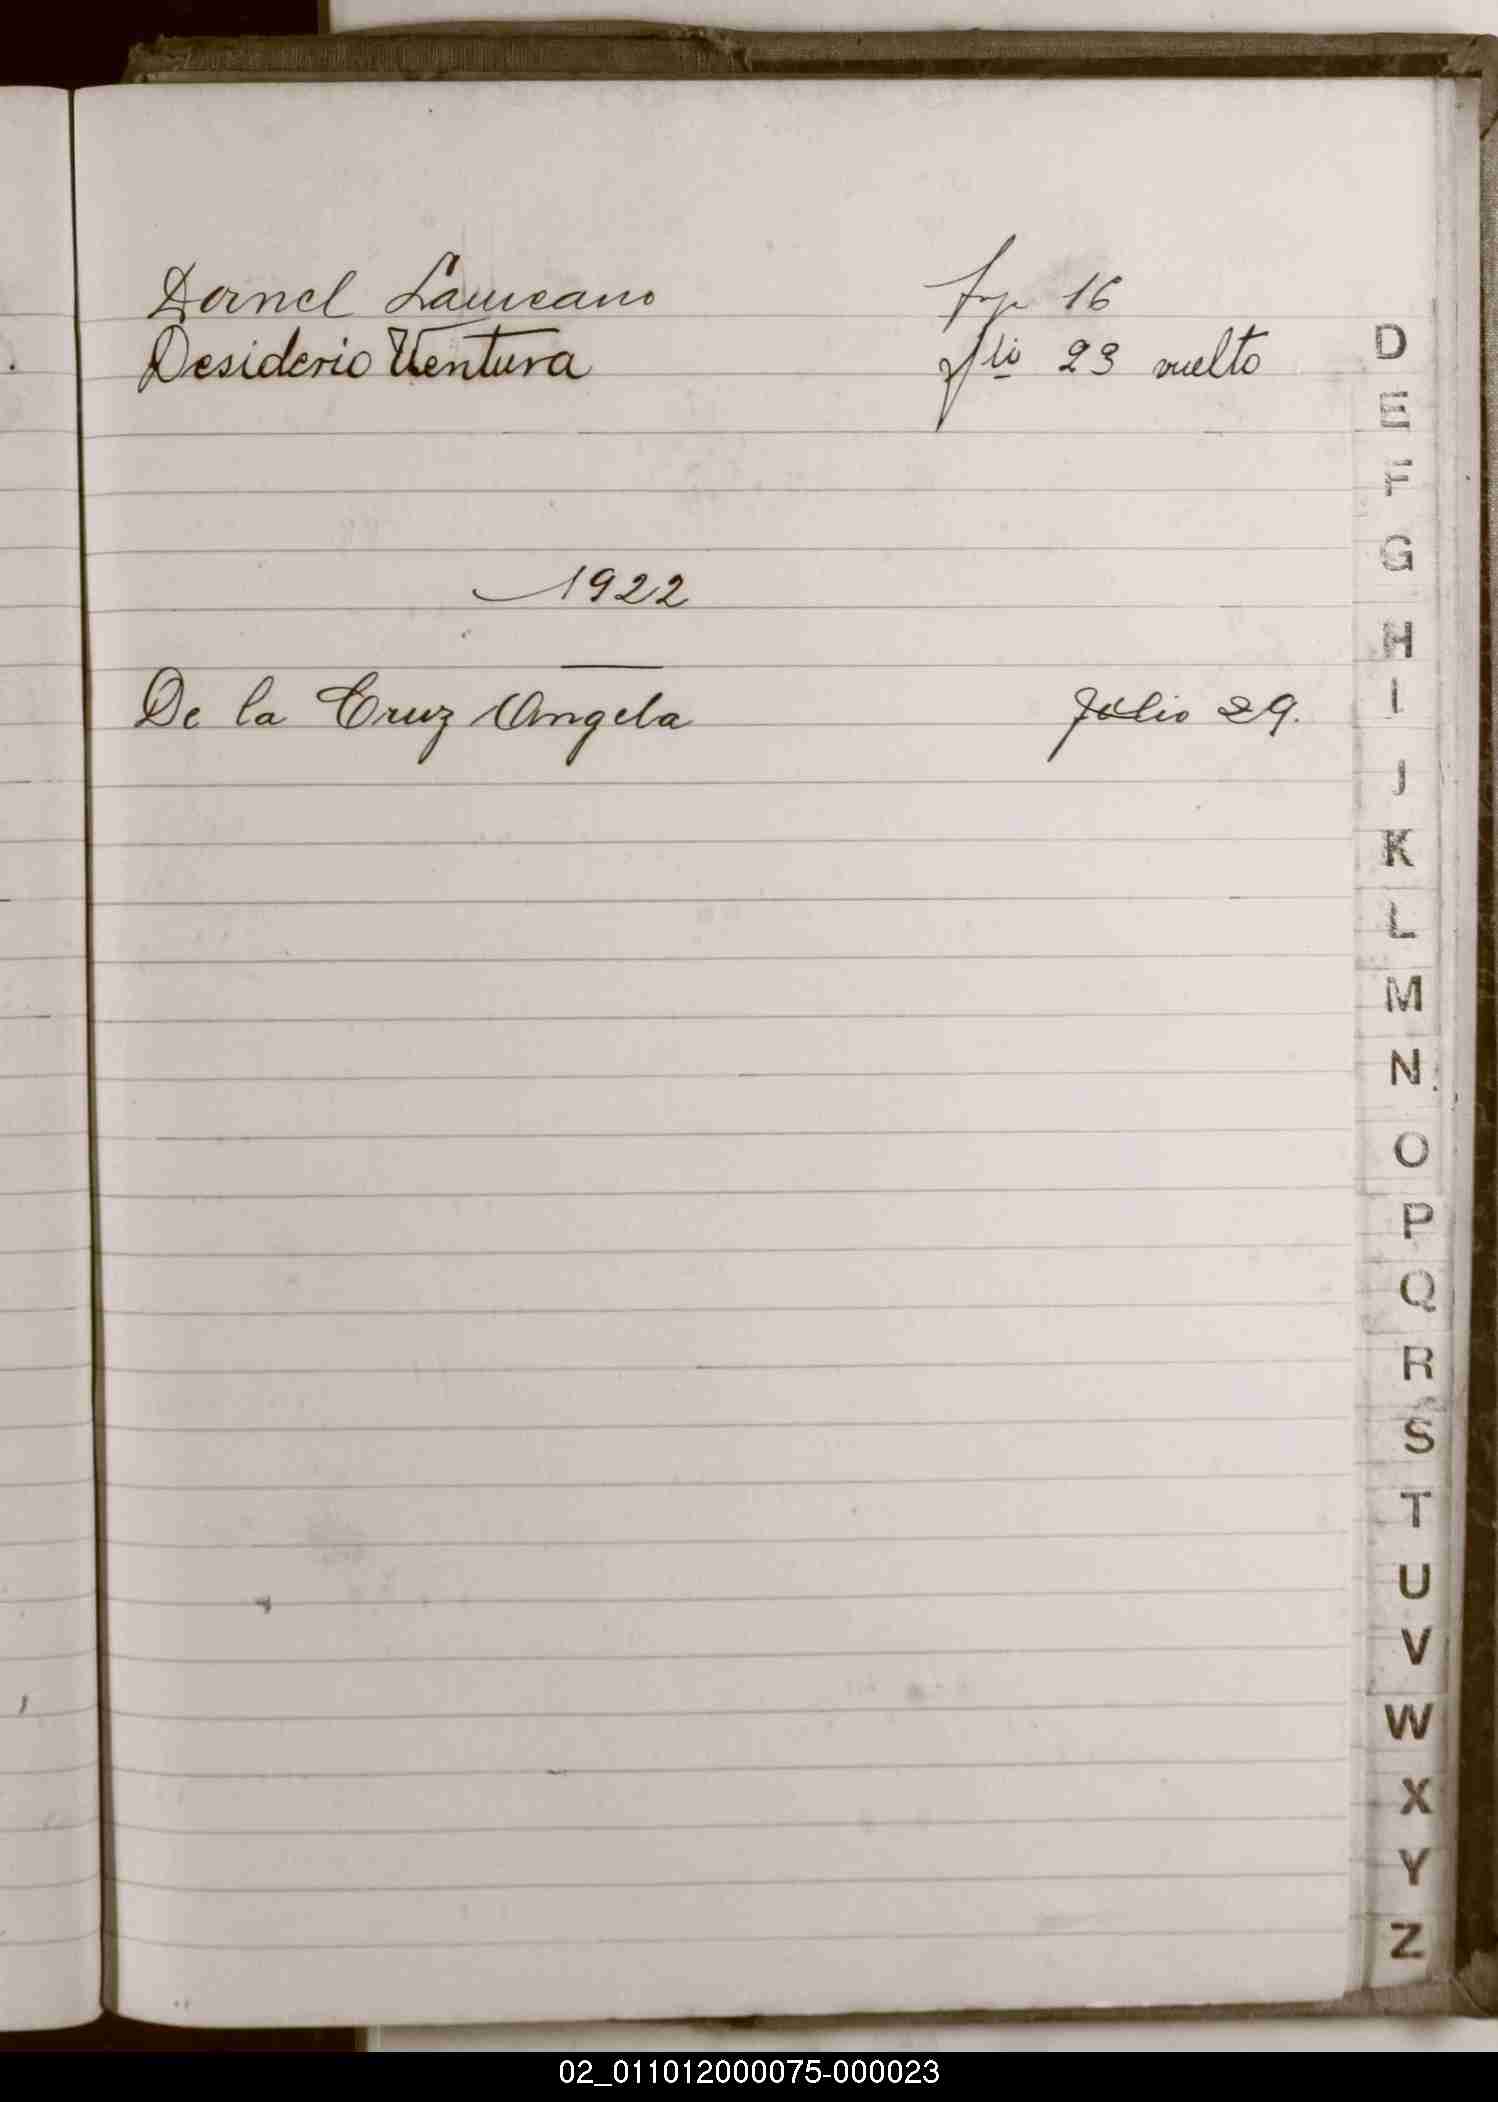 Dornel Laureano 16
Desiderio Ventura flio 23 vuelto
1922
De la Cruz Angela Julio 29.
D
E
F
G
H
I
J
K
L
M
N
O
P
Q
R
S
T
U
V
W
X
Y
Z
02_011012000075-000023